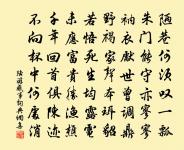 陋巷何須叹一瓢
朱門能守亦寥寥
衲衣世曾調鼎
野褐家聲本珥貂
若悟死生均露電
未應富貴勝漁樵
千年回首俱陳迹
不向杯中何處消
陸游感事詞典網書